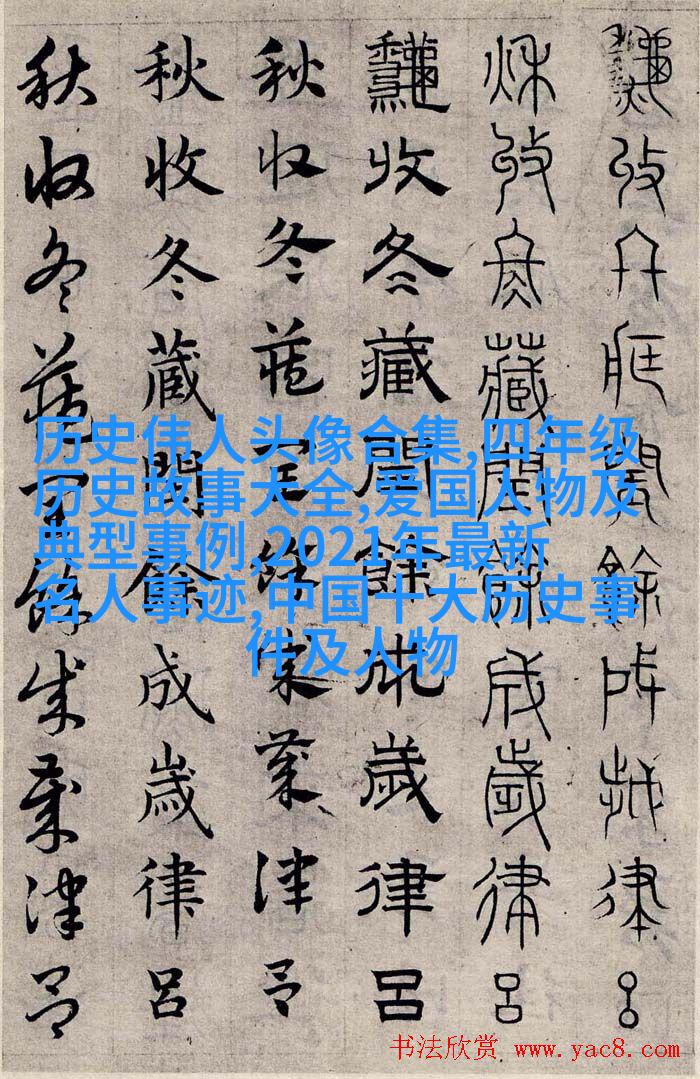 秋收冬藏閏餘成歲律呂
秋收冬藏閏餘成歲律呂
龝收冬藏閏餘成歲律呂
秋收冬藏閏餘成歲律呂
秋收冬蔵閏餘成歲律呂
秋收冬藏閏餘成歲律呂
历史伟人头像合集,四年级
历史故事大全,爱国人物及
典型事例,2021年最新
名人事迹,中国十大历史事
件及人物
书法欣赏 www.yac8.com